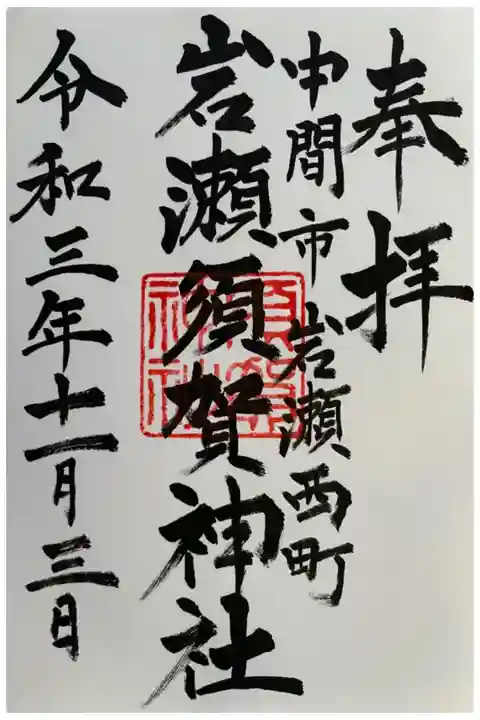 奉拝
中間市岩瀬西町
岩瀬須賀神社
須賀神社
令和三年十一月三日